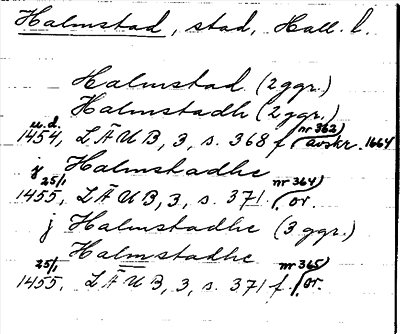 Halmstad, stad, Hall. l.
Halmstad (2 ggr.)
Halmstadh (2 ggr.)
u.d. 1454, LÄUB, 3, s. 368 f. (nr 362) avskr. 1664
j Halmstadhe
25/1 1455, LÄUB, 3, s. 371. (nr 364) or.
j Halmstadhe (3 ggr.)
Halmstadhe
25/1 1455, LÄUB, 3, s. 371 f. (nr 365) or.